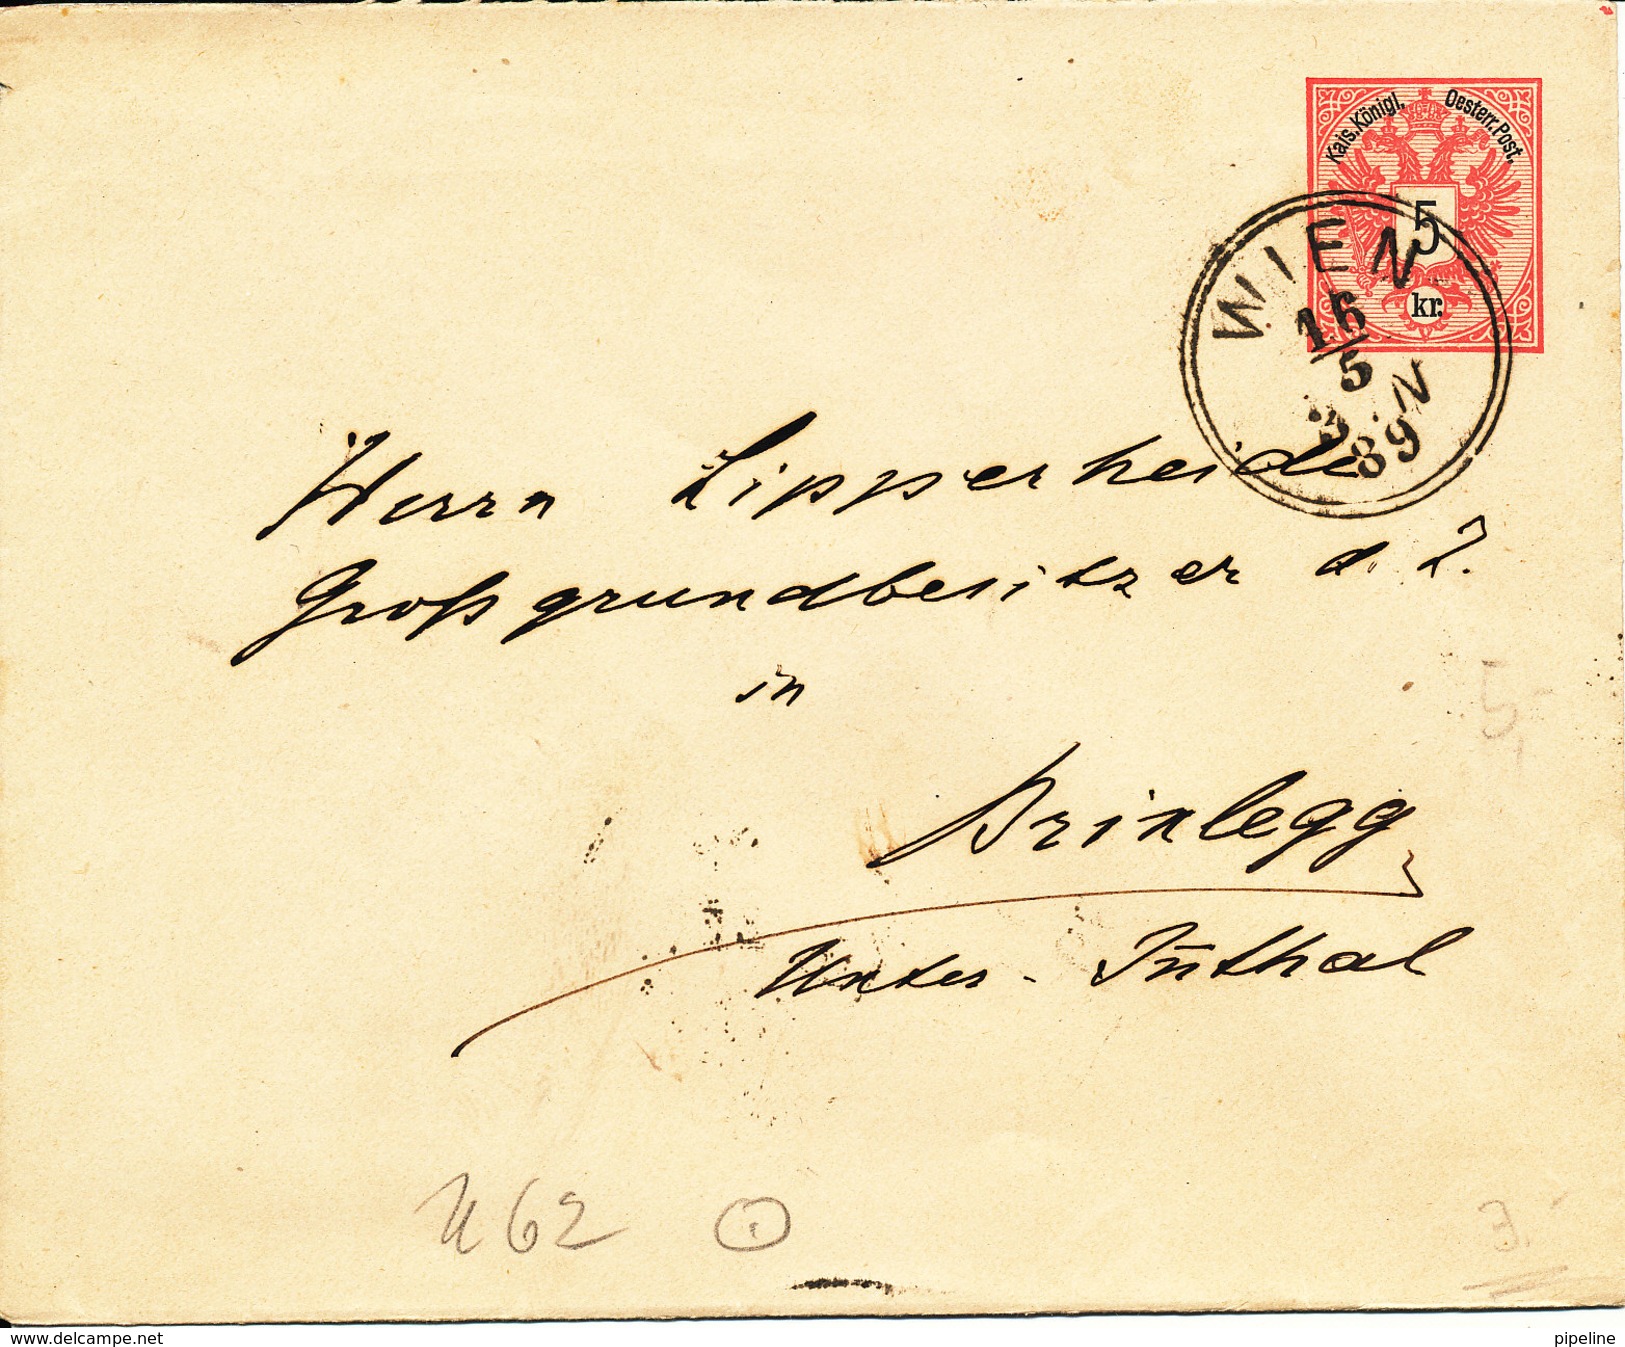 Kais. Königl. Oesterr. Post.
5
kr.
WIEN
16
5
3. N
89
Herrn Lipperheide
Großgrundbesitzer d. Z.
in
Brixlegg
Unter-Innthal
5
U 62
website: www.delcampe.net
pipeline